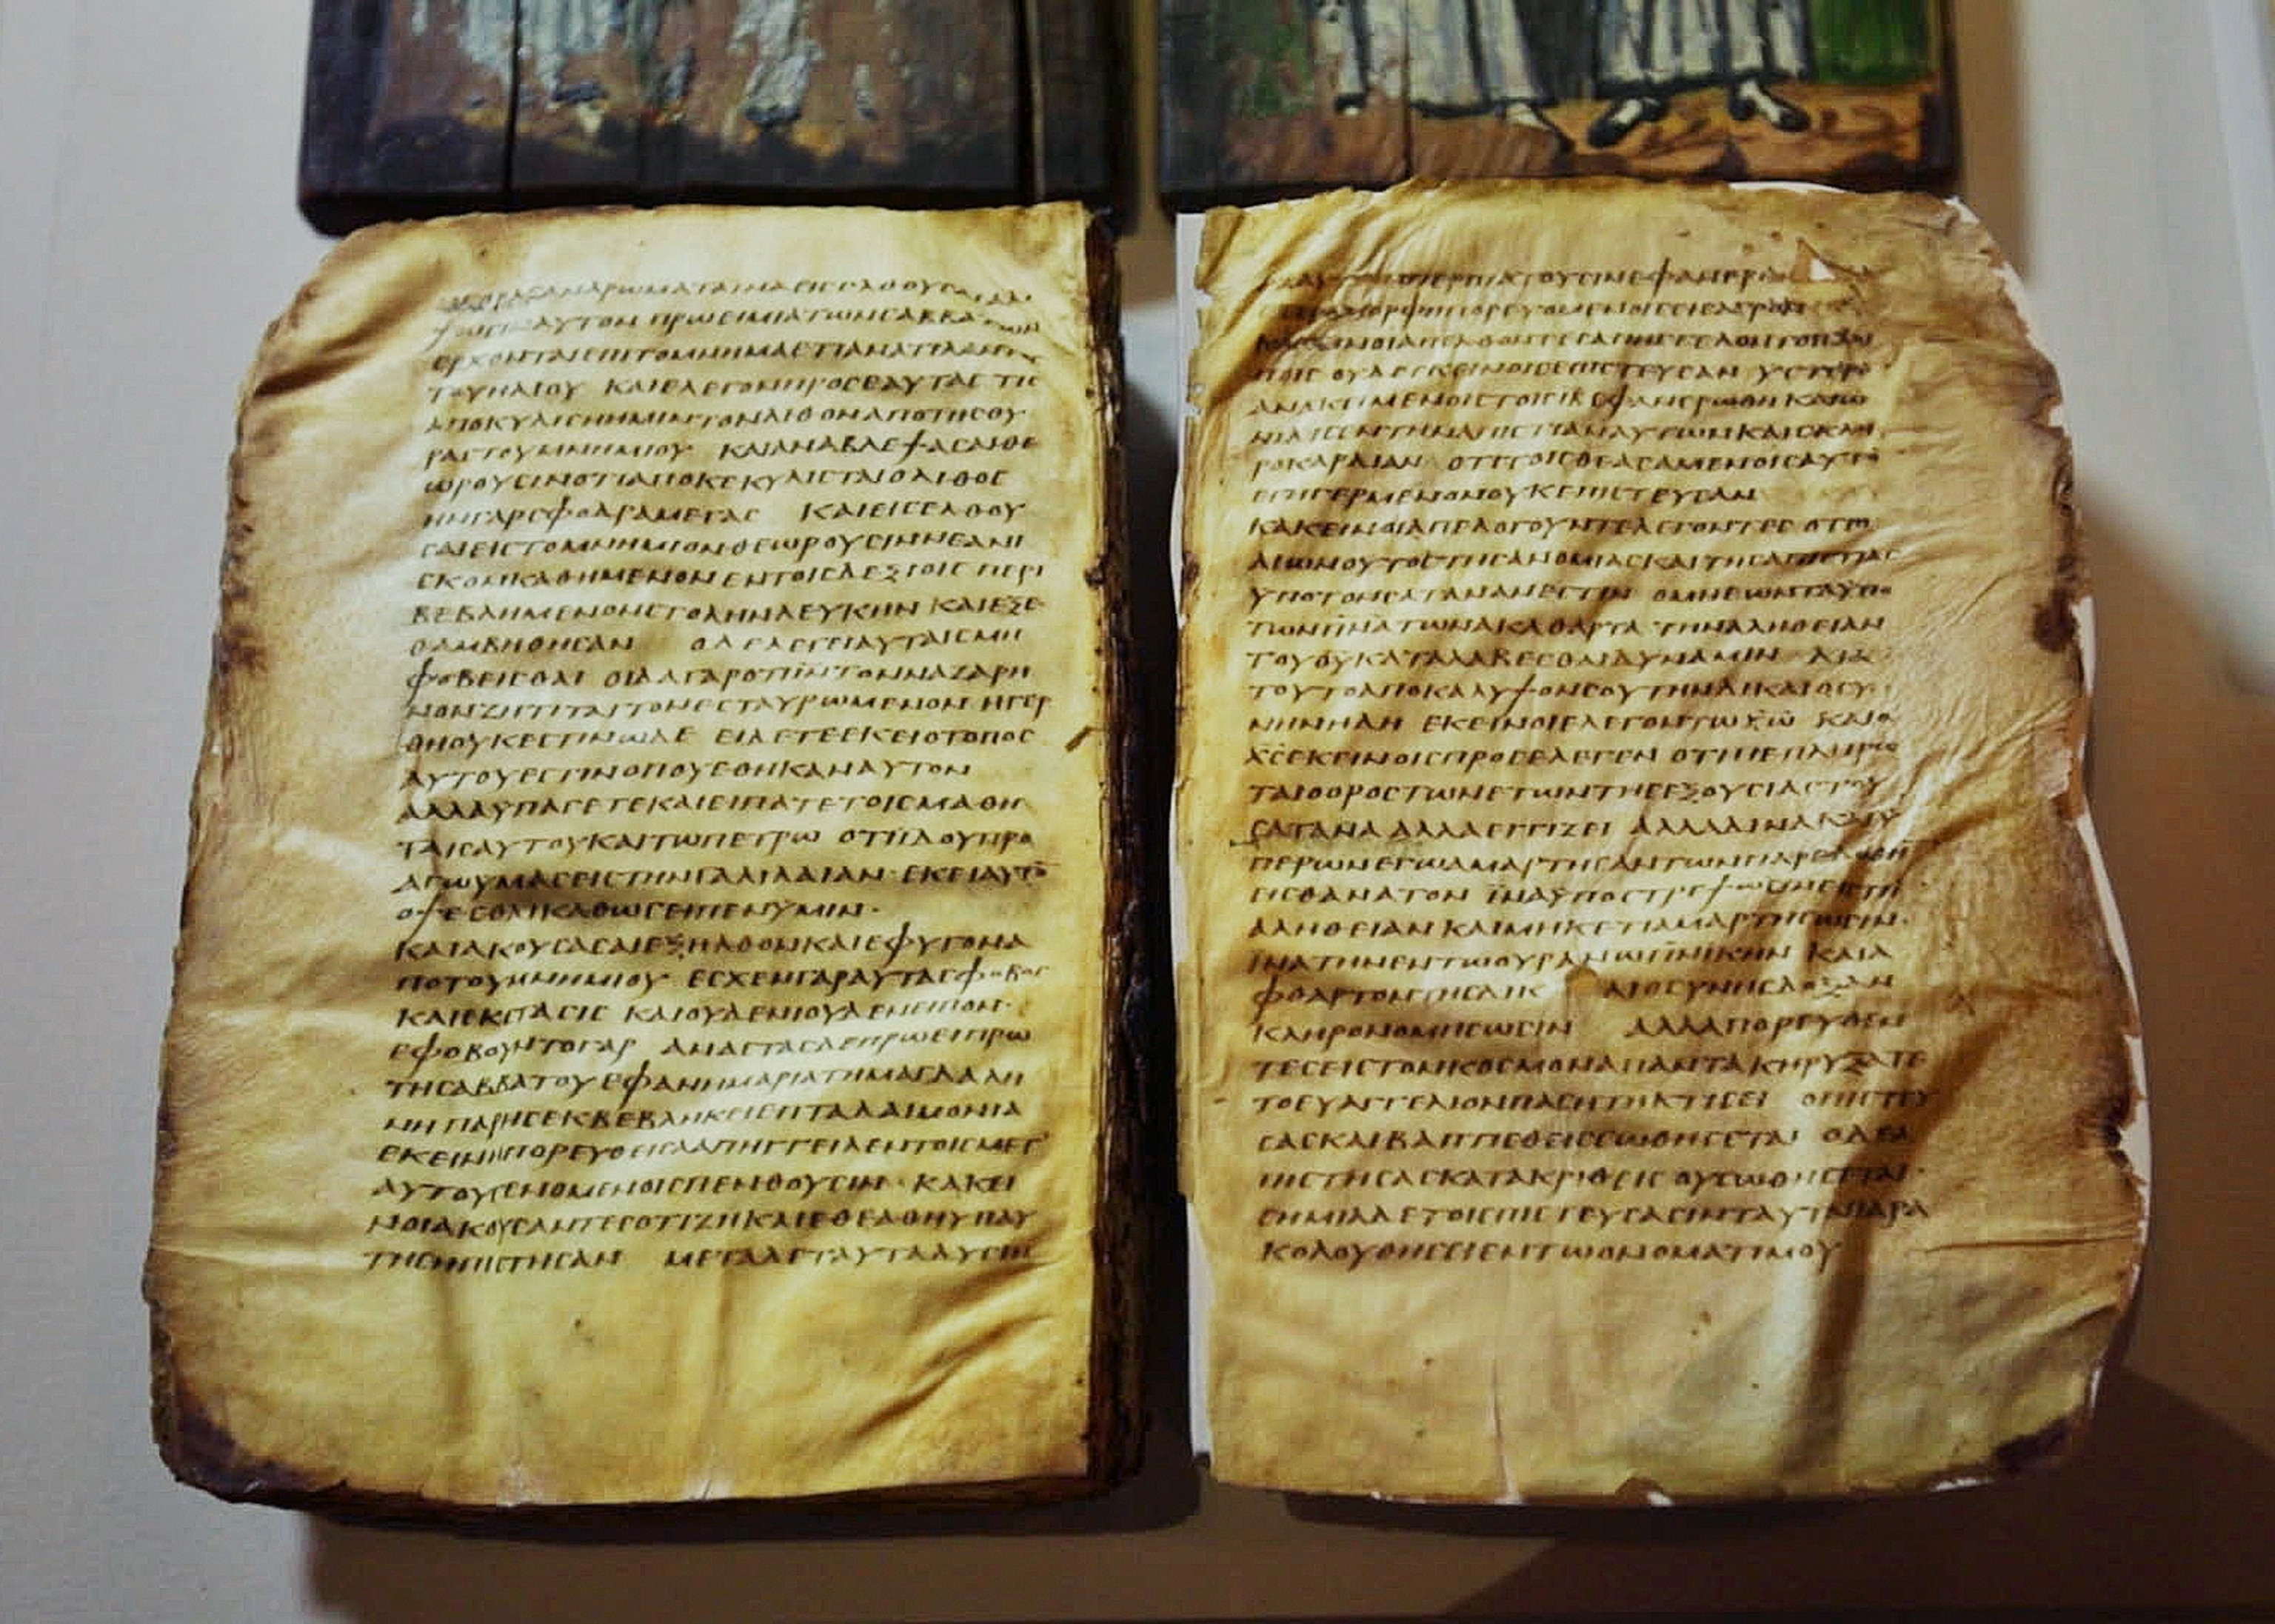 ΑΡΩΜΑΤΑΙΝΑΕΙϹΕΛΘΟΥϹΑΙ
ΑΥΤΟΝ ΠΡΩΕΙΜΙΑϹΤΩΝϹΑΒΒΑΤΩΝ
ΕΡΧΟΝΤΑΙΕΠΙΤΟΜΝΗΜΑΕΤΙΑΝΑΤΙΛΑΝΤΟϹ
ΤΟΥΗΛΙΟΥ ΚΑΙΕΛΕΓΟΝΠΡΟϹΕΑΥΤΑϹ ΤΙϹ
ΑΠΟΚΥΛΙϹΗΗΜΙΝΤΟΝΛΙΘΟΝΑΠΟΤΗϹΘΥ
ΡΑϹΤΟΥΜΝΗΜΙΟΥ ΚΑΙΑΝΑΒΛΕΨΑϹΑΙΘΕ
ΩΡΟΥϹΙΝΟΤΙΑΠΟΚΕΚΥΛΙϹΤΑΙΟΛΙΘΟϹ
ΗΝΓΑΡϹΦΟΔΡΑΜΕΓΑϹ ΚΑΙΕΙϹΕΛΘΟΥ
ϹΑΙΕΙϹΤΟΜΝΗΜΙΟΝΘΕΩΡΟΥϹΙΝΝΕΑΝΙ
ϹΚΟΝΚΑΘΗΜΕΝΟΝΕΝΤΟΙϹΔΕΞΙΟΙϹ ΠΕΡΙ
ΒΕΒΛΗΜΕΝΟΝϹΤΟΛΗΝΛΕΥΚΗΝ ΚΑΙΕΞΕ
ΘΑΜΒΗΘΗϹΑΝ ΟΔΕΛΕΓΕΙΑΥΤΑΙϹΜΗ
ΦΟΒΕΙϹΘΑΙ ΟΙΔΑΓΑΡΟΤΙΙΗΝΤΟΝΝΑΖΑΡΗ
ΝΟΝΖΗΤΙΤΑΙΤΟΝΕϹΤΑΥΡΩΜΕΝΟΝ ΗΓΕΡ
ΘΗΟΥΚΕϹΤΙΝΩΔΕ ΕΙΔΕΤΕΕΚΕΙΟΤΟΠΟϹ
ΑΥΤΟΥΕϹΤΙΝΟΠΟΥΕΘΗΚΑΝΑΥΤΟΝ
ΑΛΛΑΥΠΑΓΕΤΕΚΑΙΕΙΠΑΤΕΤΟΙϹΜΑΘΗ
ΤΑΙϹΑΥΤΟΥΚΑΙΤΩΠΕΤΡΩ ΟΤΙΙΔΟΥΠΡΟ
ΑΓΩΥΜΑϹΕΙϹΤΗΝΓΑΛΙΛΑΙΑΝ·ΕΚΕΙΑΥΤΟ̄
ΟΨΕϹΘΑΙΚΑΘΩϹΕΙΠΕΝΥΜΙΝ·
ΚΑΙΑΚΟΥϹΑϹΑΙΕΞΗΛΘΟΝΚΑΙΕΦΥΓΟΝΑ
ΠΟΤΟΥΜΝΗΜΙΟΥ ΕϹΧΕΝΓΑΡΑΥΤΑϹΦΟΒΟϹ
ΚΑΙΕΚϹΤΑϹΙϹ ΚΑΙΟΥΔΕΝΙΟΥΔΕΝΕΙΠΟΝ·
ΕΦΟΒΟΥΝΤΟΓΑΡ ΑΝΑϹΤΑϹΔΕΠΡΩΕΙΠΡΩ
ΤΗϹΑΒΒΑΤΟΥΕΦΑΝΗΜΑΡΙΑΤΗΜΑΓΔΑΛΗ
ΝΗ ΠΑΡΗϹΕΚΒΕΒΛΗΚΕΙΕΠΤΑΔΑΙΜΟΝΙΑ
ΕΚΕΙΝΗΠΟΡΕΥΘΕΙϹΑΑΠΗΓΓΕΙΛΕΝΤΟΙϹΜΕΤ
ΑΥΤΟΥΓΕΝΟΜΕΝΟΙϹΠΕΝΘΟΥϹΙΝ·ΚΑΚΕΙ
ΝΟΙΑΚΟΥϹΑΝΤΕϹΟΤΙΖΗΚΑΙΕΘΕΑΘΗΥΠΑΥ
ΤΗϹΗΠΙϹΤΗϹΑΝ ΜΕΤΑΔΕΤΑΥΤΑΔΥϹΙΝ
ΠΕΡΙΠΑΤΟΥϹΙΝΕΦΑΝΕΡΩ
ΠΟΡΕΥΟΜΕΝΟΙϹΕΙϹΑΓΡΟΝ
ΚΑΚΕΙΝΟΙΑΠΕΛΘΟΝΤΕϹΑΠΗΓΓΕΛΟΝΤΟΙϹΛΟΙ
ΠΟΙϹ ΟΥΔΕΕΚΕΙΝΟΙϹΕΠΙϹΤΕΥϹΑΝ ΥϹΤΕΡΟ̄
ΑΝΑΚΙΜΕΝΟΙϹΤΟΙϹΙΒΕΦΑΝΕΡΩΘΗ ΚΑΙΩ
ΝΙΔΙϹΕΝΤΗΝΑΠΙϹΤΙΑΝΑΥΤΩΝΚΑΙϹΚΛΗ
ΡΟΚΑΡΔΙΑΝ ΟΤΙΤΟΙϹΘΕΑϹΑΜΕΝΟΙϹΑΥΤΟ̄
ΕΓΗΓΕΡΜΕΝΟΝΟΥΚΕΠΙϹΤΕΥϹΑΝ
ΚΑΚΕΙΝΟΙΑΠΕΛΟΓΟΥΝΤΕΛΕΓΟΝΤΕϹ ΟΤΙΟ
ΑΙΩΝΟΥΤΟϹΤΗϹΑΝΟΜΙΑϹΚΑΙΤΗϹΑΠΙϹΤΙΑϹ
ΥΠΟΤΟΝϹΑΤΑΝΑΝΕϹΤΙΝ ΟΜΗΕΩΝΤΑΥΠΟ
ΤΩΝΠΝΑΤΩΝΑΚΑΘΑΡΤΑ ΤΗΝΑΛΗΘΕΙΑΝ
ΤΟΥΘΥΚΑΤΑΛΑΒΕϹΘΑΙΔΥΝΑΜΙΝ ΔΙΑ
ΤΟΥΤΟΑΠΟΚΑΛΥΨΟΝϹΟΥΤΗΝΔΙΚΑΙΟϹΥ
ΝΗΝΗΔΗ ΕΚΕΙΝΟΙΕΛΕΓΟΝΤΩΧΩ ΚΑΙΟ
ΧϹΕΚΕΙΝΟΙϹΠΡΟϹΕΛΕΓΕΝ ΟΤΙΠΕΠΛΗΡΩ
ΤΑΙΟΟΡΟϹΤΩΝΕΤΩΝΤΗϹΕΞΟΥϹΙΑϹΤΟΥ
ϹΑΤΑΝΑ ΑΛΛΑΕΓΓΙΖΕΙ ΑΛΛΑΔΙΝΑΚΑΙΥ
ΠΕΡΩΝΕΓΩΑΜΑΡΤΗϹΑΝΤΩΝΠΑΡΕΔΟΘΗ
ΕΙϹΘΑΝΑΤΟΝ ΙΝΑΥΠΟϹΤΡΕΨΩϹΙΝΕΙϹΤΗ
ΑΛΗΘΕΙΑΝΚΑΙΜΗΚΕΤΙΑΜΑΡΤΗϹΩϹΙΝ·
ΙΝΑΤΗΝΕΝΤΩΟΥΡΑΝΩΠΝΙΚΗΝ ΚΑΙΑ
ΦΘΑΡΤΟΝΤΗϹΔΙΚ ΑΙΟϹΥΝΗϹΔΟΞΑΝ
ΚΛΗΡΟΝΟΜΗϹΩϹΙΝ ΑΛΛΑΠΟΡΕΥΘΕΝ
ΤΕϹΕΙϹΤΟΝΚΟϹΜΟΝΑΠΑΝΤΑΚΗΡΥΞΑΤΕ
ΤΟΕΥΑΓΓΕΛΙΟΝΠΑϹΗΤΗΚΤΙϹΕΙ ΟΠΙϹΤΕΥ
ϹΑϹΚΑΙΒΑΠΤΙϹΘΕΙϹϹΩΘΗϹΕΤΑΙ ΟΔΕΑ
ΠΙϹΤΗϹΑϹΚΑΤΑΚΡΙΘΕΙϹ ΟΥϹΩΘΗϹΕΤΑΙ·
ϹΗΜΙΑΔΕΤΟΙϹΠΙϹΤΕΥϹΑϹΙΝΤΑΥΤΑΠΑΡΑ
ΚΟΛΟΥΘΗϹΕΙΕΝΤΩΟΝΟΜΑΤΙΜΟΥ